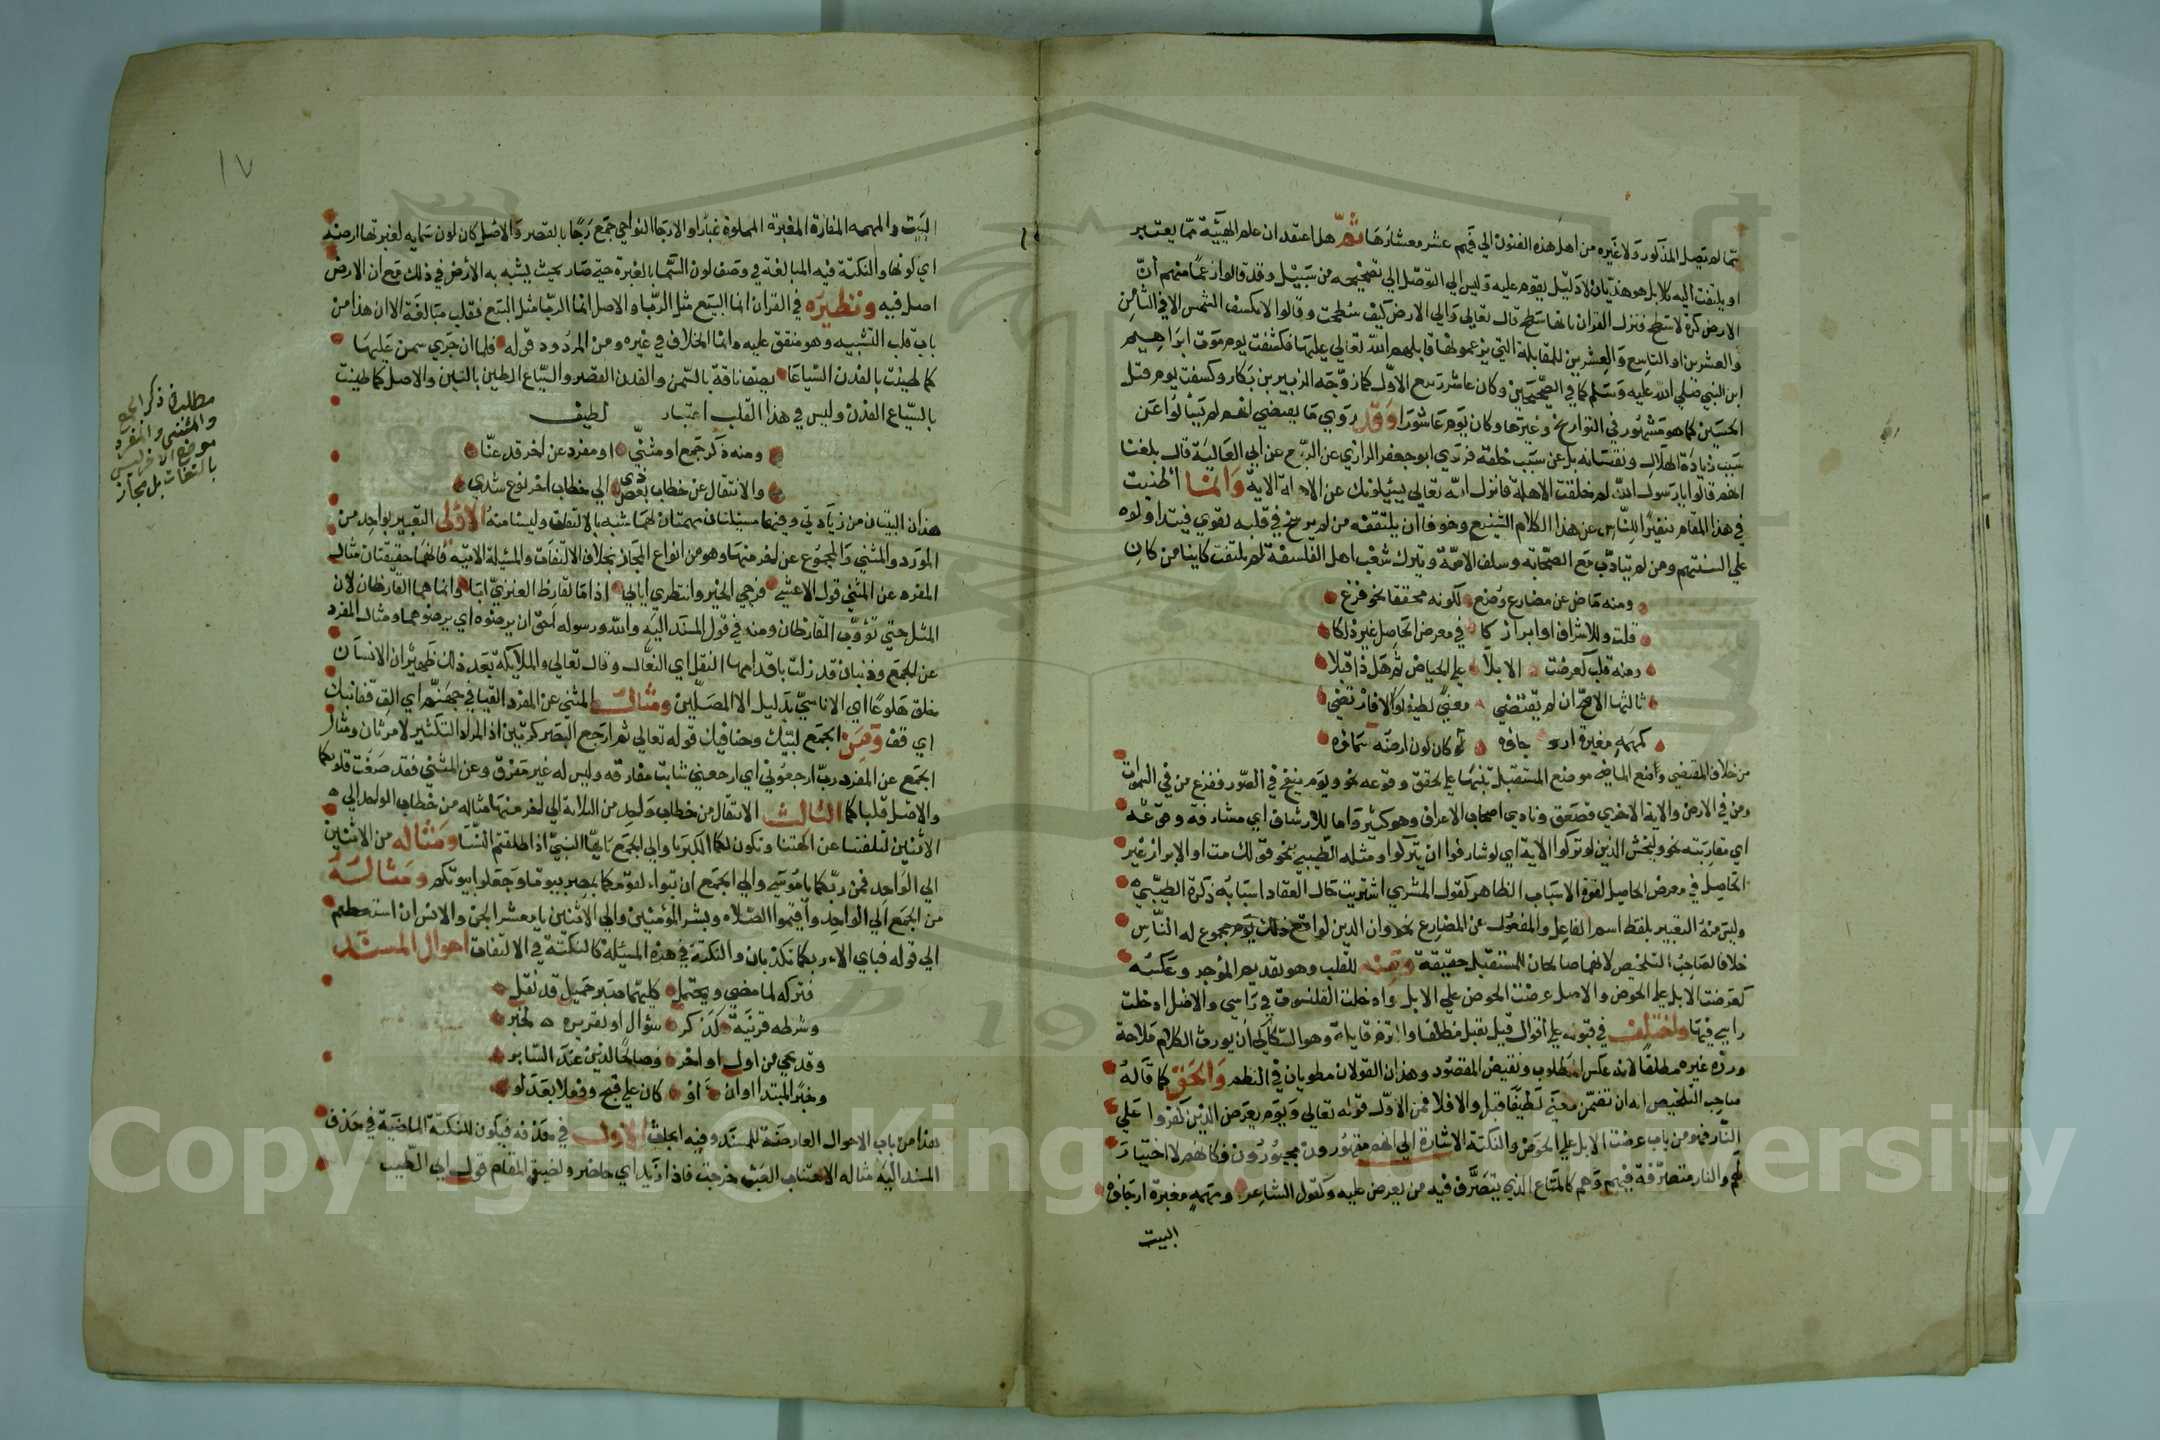 مما لم يصل المذكور ولا غيره من اهل هذه الفنون الي فهم عشر معشارها ثم هل اعتقد ان علم الهيئة مما يعتبر
او يلتفت اليه كلا بل هو هذيان لا دليل يقوم عليه وليس الي التوصل الي تصحيحه من سبيل وقد قالوا زعما منهم ان
الارض كرة لا سطح فنزل القران بانها سطح قال تعالي والي الارض كيف سطحت وقالوا لا تكسف الشمس الا في الثامن
والعشرين او التاسع والعشرين للمقابلة التي يزعمونها قابلهم الله تعالي عليها فكسفت يوم موت ابراهيم
ابن النبي صلي الله عليه وسلم كما في الصحيحين وكان عاشر ربيع الاول كما رواه الزبير بن بكار وكسفت يوم قتل
الحسين كما هو مشهور في التواريخ وغيرها وكان يوم عاشورا وقد روي ما يقتضي انهم لم يسالوا عن
سبب زيادة الهلال ونقصانه بل عن سبب خلقه فروي ابو جعفر الرازي عن الربيع عن ابي العالية قال بلغنا
انهم قالوا يا رسول الله لم خلقت الاهلة فانزل الله تعالي يسئلونك عن الاهلة الاية وانما اطنبت
في هذا المقام تنفيرا للناس عن هذا الكلام الشنيع وخوفا ان يتلقفه من لم يرسخ في قلبه تقوي فيتداولوه
علي السنتهم ومن لم يتادب مع الصحابة وسلف الامة ويترك شغب اهل الفلسفة لم يلتفت كاينا من كان
ومنه ماض عن مضارع وضع لكونه محققا نحو فزع
قلت وللاشراف او ابراز كا في معرض الحاصل غير ذلكا
ومنه قلب كعرضت الابلا علي الحياض ثم هل ذا قبلا
ثالثها الاصح ان لم يقتضي معني لطيفا او لا فارتضي
كمهمه مغبرة ارجاوه كان لون ارضه سماوه
من خلاف المقتضي وضع الماضي موضع المستقبل تنبيها علي تحقق وقوعه نحو ويوم ينفخ في الصور ففزع من في السموات
ومن في الارض والاية الاخري فصعق ونادي اصحاب الاعراف وهو كثير واما للاشراف اي مشارفة وقوعه
اي مقاربته نحو وليخش الذين لو تركوا الاية اي لو شارفوا ان يتركوا ومثله الطيبي بنحو قولك مت او الابراز غير
الحاصل في معرض الحاصل لقوة الاسباب الظاهر كقول المشتري اشتريت حال انعقاد اسبابه ذكره الطيبي
وليس منه التعبير بلفظ اسم الفاعل والمفعول عن المضارع نحو وان الدين لواقع ذلك يوم مجموع له الناس
خلافا لصاحب التلخيص لانهما صالحان للمستقبل حقيقة ومنه القلب وهو تقديم الموخر وعكسه
كعرضت الابل علي الحوض والاصل عرضت الحوض علي الابل وادخلت القلنسوة في راسي والاصل ادخلت
راسي فيها واختلف في قبوله علي اقوال قيل يقبل مطلقا وهو السكاكي ان يورث الكلام ملاحة
ورده غيره مطلقا لانه عكس المطلوب ونقيض المقصود وهذان القولان مطويان في النظم والحق كما قاله
صاحب التلخيص انه ان تضمن معني لطيفا قبل والا فلا فمن الاول قوله تعالي ويوم يعرض الذين كفروا علي
النار فهو من باب عرضت الابل علي الحوض والنكتة الاشارة الي انهم مقهورون مجبورون فكانهم لا اختيار
لهم والنار متصرفة فيهم وهم كالمتاع الذي يتصرف فيه من يعرض عليه وكقول الشاعر ومهمه مغبرة ارجاوه
البيت
١٧
البيت والمهمه المفازة المغبرة المملوة غبارا والارجا النواحي جمع رجا بالقصر والاصل كان لون سمايه لغبرتها ارضه
اي لونها والنكتة فيه المبالغة في وصف لون السما بالغبرة حتي صار بحيث يشبه به الارض في ذلك مع ان الارض
اصل فيه ونظيره في القران انما البيع مثل الربا والاصل انما الربا مثل البيع فقلب مبالغة الا ان هذا من
باب قلب التشبيه وهو متفق عليه وانما الخلاف في غيره ومن المردود قوله فلما ان جري سمن عليها
كما طينت بالفدن السياعا يصف ناقة بالسمن والفدن القصر والسياع الطين بالتبن والاصل كما طينت
بالسياع الفدن وليس في هذا القلب اعتبار لطيف
ومنه ذكر جمع او مثني او مفرد عن اخر قد عنا
والانتقال عن خطاب بعض ذي الي خطاب اخر نوع شذي
هذان البيتان من زيادتي وفيهما مسئلتان مهمتان لهما شبه بالالتفات وليستا منه الاولي التعبير بواحد من
المفرد والمثني والمجموع عن اخر منها وهو من انواع المجاز بخلاف الالتفات والمسئلة الاتية فانهما حقيقتان مثال
المفرد عن المثني قول الاعشي فرجي الخير وانتظري ايابي اذا ما القارظ العنزي ابا وانما هما القارظان لان
المثل حتي يؤوب القارظان ومنه في قول المسند اليه والله ورسوله احق ان يرضوه اي يرضوهما ومثال المفرد
عن الجمع وذبيان قد زلت باقدامها النعل اي النعال وقال تعالي والملايكة بعد ذلك ظهير ان الانسان
خلق هلوعا اي الاناسي بدليل الا المصلين ومثال المثني عن المفرد القيا في جهنم اي الق قفا نبك
اي قف ومن الجمع لبيك وحنانيك قوله تعالي ثم ارجع البصر كرتين اذ المراد التكثير لا مرتان ومثال
الجمع عن المفرد رب ارجعوني اي ارجعني شابت مفارقه وليس له غير مفرق وعن المثني فقد صغت قلوبكما
والاصل قلباكما الثالث الانتقال من خطاب واحد من الثلاثة الي اخر منها مثاله من خطاب الواحد الي
الاثنين لتلفتنا عن الهتنا وتكون لكما الكبريا والي الجمع يايها النبي اذا طلقتم النسا ومثاله من الاثنين
الي الواحد فمن ربكما يا موسي والي الجمع ان تبوءا لقومكما بمصر بيوتا واجعلوا بيوتكم ومثاله
من الجمع الي الواحد واقيموا الصلاه وبشر المؤمنين والي الاثنين يا معشر الجن والانس ان استطعتم
الي قوله فباي الاء ربكما تكذبان والنكتة في هذه المسئلة كالنكتة في الالتفات احوال المسند
فتركه لما مضي ويحتمل كليهما صبر جميل قد نقل
وشرطه قرينة كذكر سؤال او تقديره لخبر
وقد يجي من اول او اخر وصالحا لذين عند السابر
وخبر المبتدا او ان او كان علي قبح وفعلا بعد لو
هذا من باب الاحوال العارضة للمسند وفيه ابحاث الاول في حذفه فيكون للنكتة الماضية في حذف
المسند اليه مثاله الاجتناب العبث خرجت فاذا زيد اي حاضر ولضيق المقام قول ابي الطيب
مطلب في ذكر الجمع
والمثني والمفرد
موضع الاخر ليس
بالتفات بل مجاز
Copyright © King Saud University